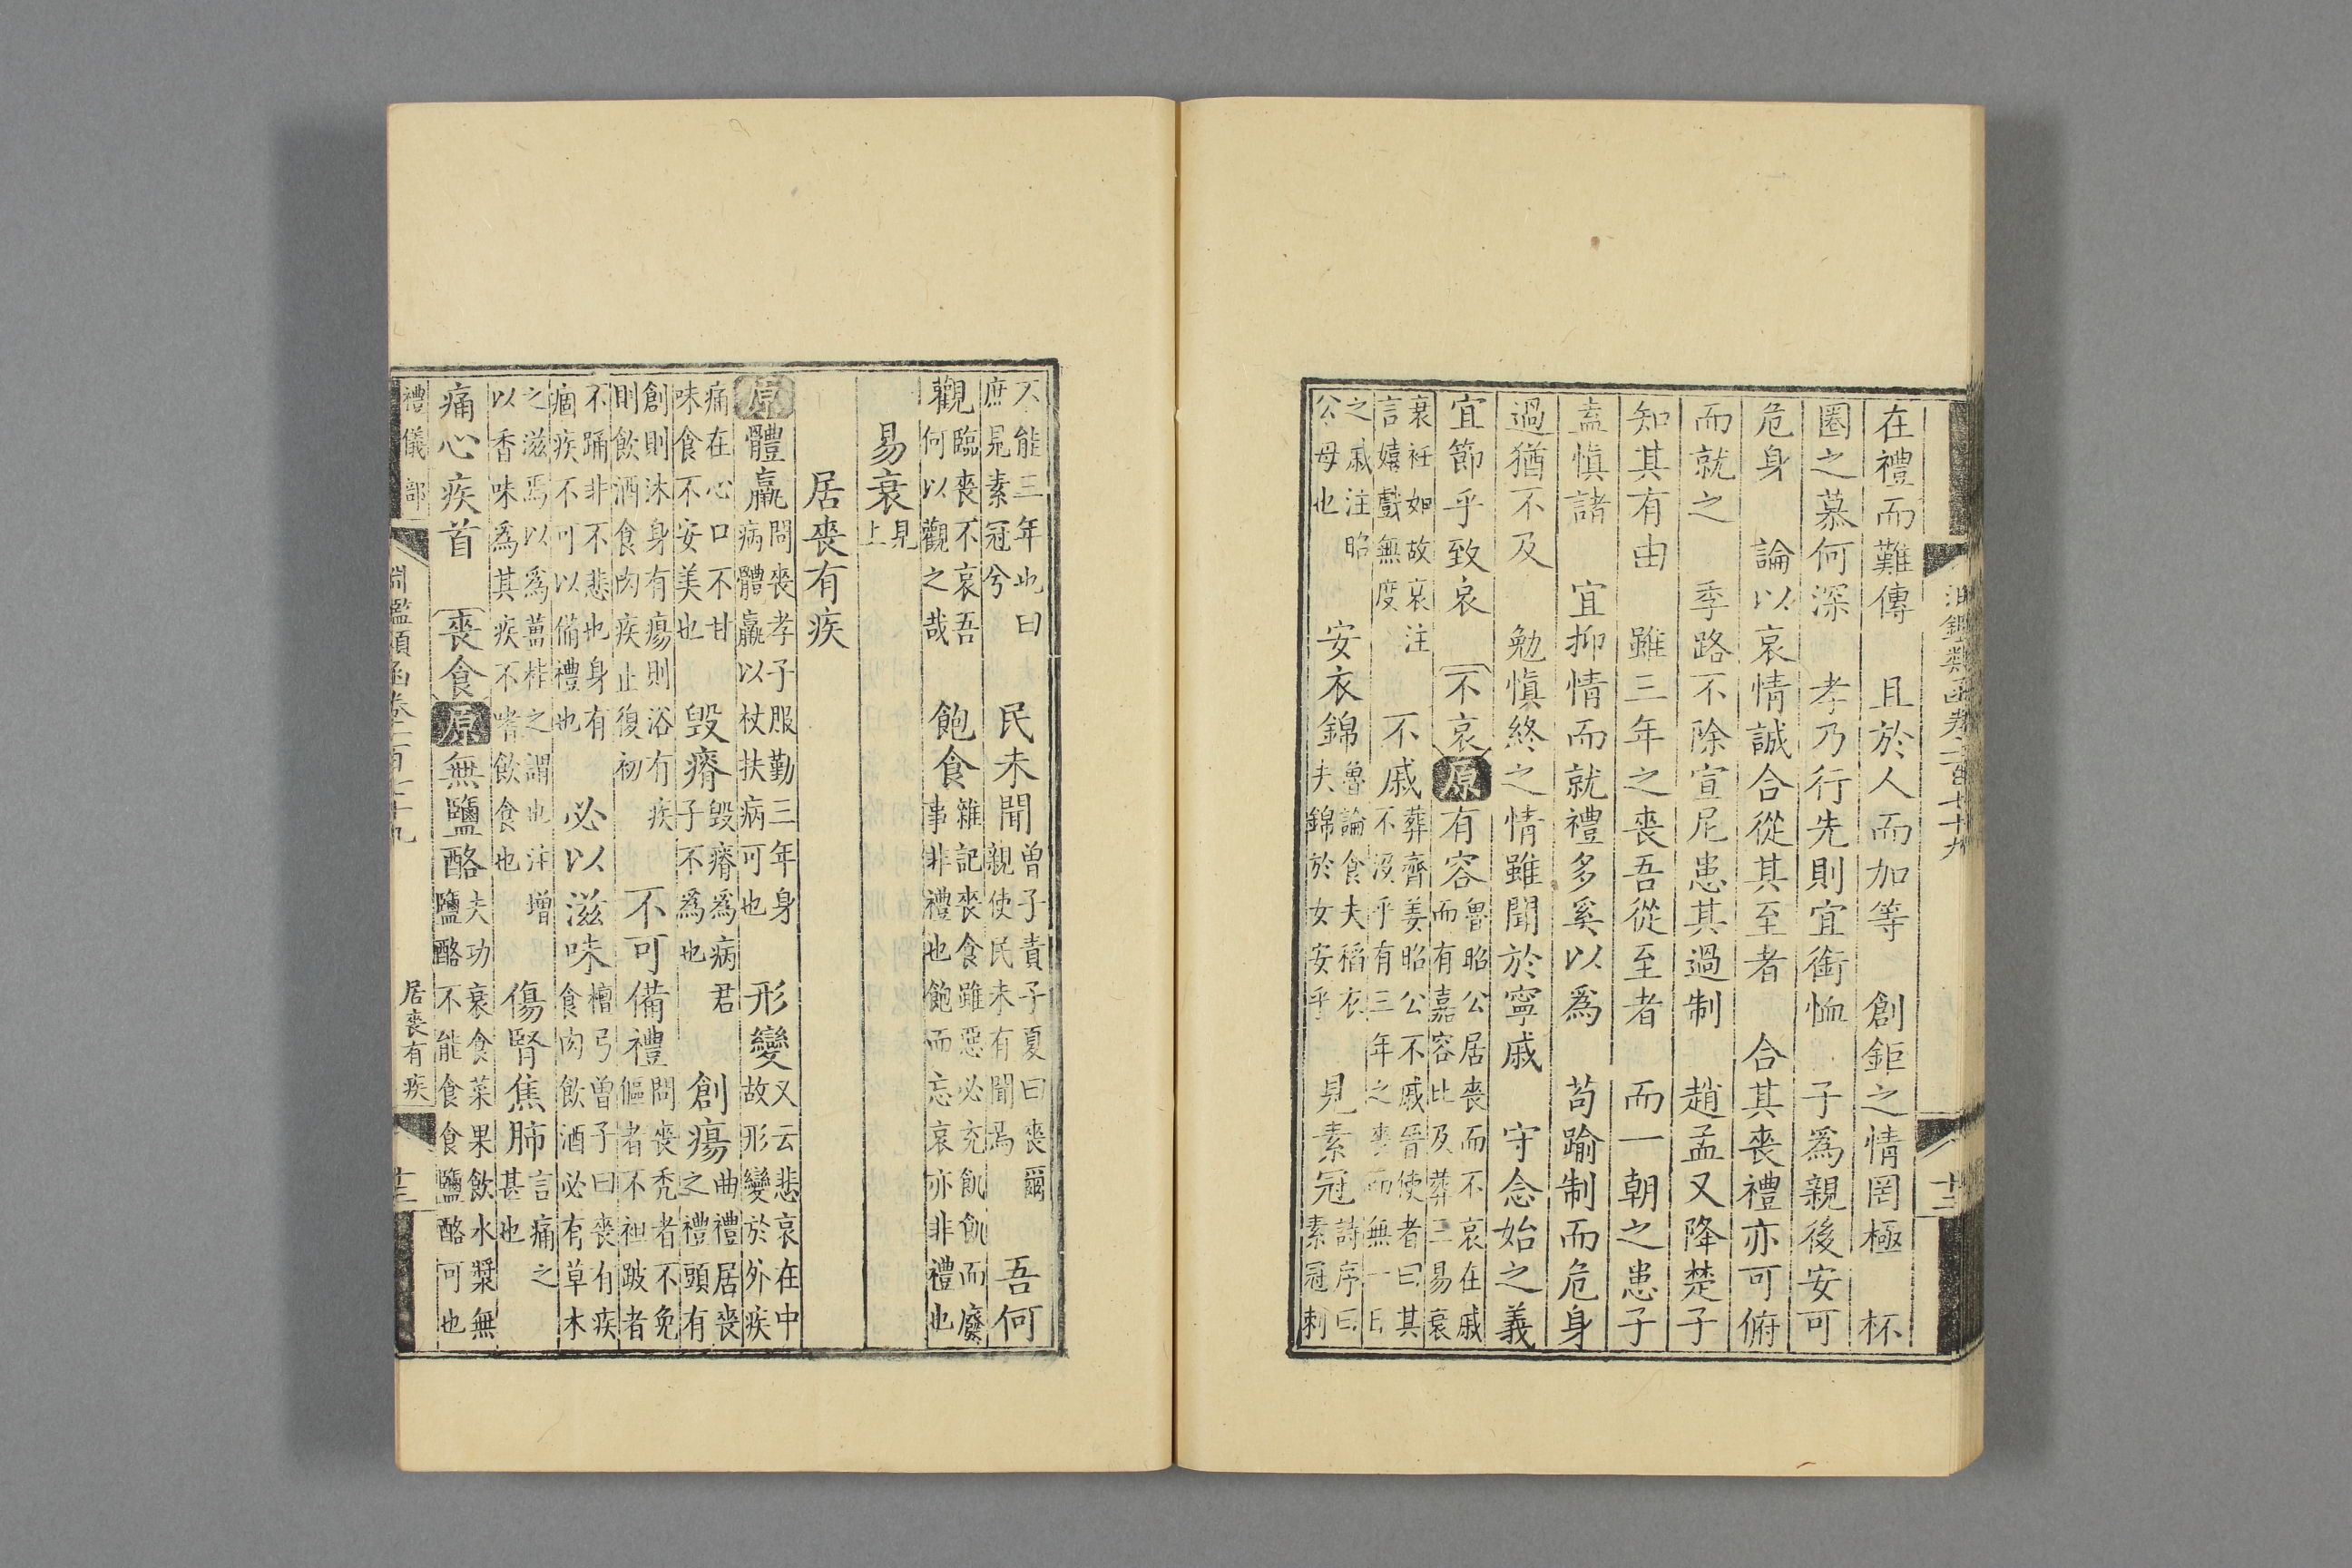 淵鑑類函卷一百七十九　十二
在禮而難傳　且於人而加等　創鉅之情罔極　杯
圈之慕何深　孝乃行先則宜銜恤　子爲親後安可
危身　論以哀情誠合從其至者　合其喪禮亦可俯
而就之　季路不除宣尼患其過制　趙孟又降楚子
知其有由　雖三年之喪吾從至者　而一朝之患子
盍慎諸　宜抑情而就禮多奚以爲　苟踰制而危身
過猶不及　勉慎終之情雖聞於寧戚　守念始之義
宜節乎致哀　不哀 原 有容 魯昭公居喪而不哀在戚 而有嘉容比及葬三易衰
衰衽如故衰注 言嬉戲無度　不戚 葬齊姜昭公不戚晉使者曰其 不沒乎有三年之喪而無一日
之戚注昭 公母也　安衣錦 魯論食夫稻衣 夫錦於女安乎　見素冠 詩序曰 素冠刺
不能三年也曰 庶見素冠兮　民未聞 曾子責子夏曰喪爾 親使民未有聞焉　吾何
觀 臨喪不哀吾 何以觀之哉　飽食 雜記喪食雖惡必充飢飢而廢 事非禮也飽而忘哀亦非禮也
易衰 見 上
居喪有疾
原 體羸 問喪孝子服勤三年身 病體羸以杖扶病可也　形變 又云悲哀在中 故形變於外疾
痛在心口不甘 味食不安美也　毀瘠 毀瘠爲病君 子不爲也　創瘍 曲禮居喪 之禮頭有
創則沐身有瘍則浴有疾 則飲酒食肉疾止復初　不可備禮 問喪禿者不免 傴者不袒跛者
不踊非不悲也身有 痼疾不可以備禮也　必以滋味 檀弓曾子曰喪有疾 食肉飲酒必有草木
之滋焉以爲薑桂之謂也注增 以香味爲其疾不嗜飲食也　傷腎焦肺 言痛之 甚也
痛心疾首　喪食 原 無鹽酪 夫功衰食菜果飲水漿無 鹽酪不能食食鹽酪可也
禮儀部　淵鑑類函卷一百七十九　居喪有疾　十三